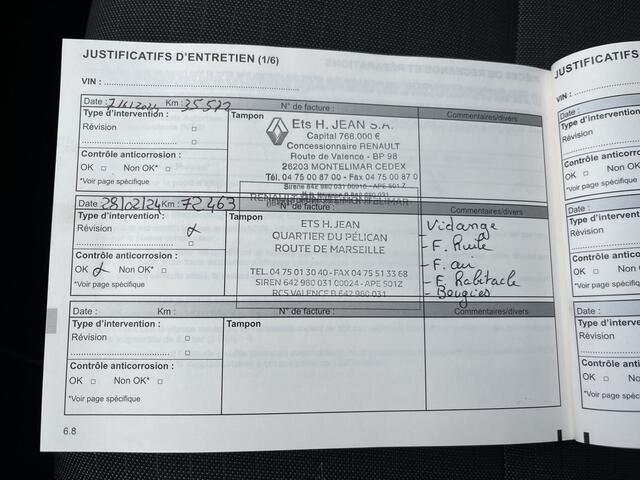 JUSTIFICATIFS D'ENTRETIEN (1/6)
VIN :
Date : Km : 35 573 N° de facture : Commentaires/divers
Type d'intervention : Tampon
Révision
Contrôle anticorrosion :
OK Non OK*
*Voir page spécifique
Ets H. JEAN S.A.
Capital 768.000 €
Concessionnaire RENAULT
Route de Valence - BP 98
26203 MONTELIMAR CEDEX
Tél. 04 75 00 87 00 - Fax 04 75 00 87 0
Siren 642 980 031 00016 - APE 501 Z
Date : 28/02/24 Km : 72 463 N° de facture : Commentaires/divers
Type d'intervention : Tampon
Révision
Contrôle anticorrosion :
OK Non OK*
*Voir page spécifique
RENAULT MONTELIMAR
ETS H. JEAN
QUARTIER DU PÉLICAN
ROUTE DE MARSEILLE
TEL. 04 75 01 30 40 - FAX 04 75 51 33 68
SIREN 642 980 031 00024 - APE 501Z
RCS VALENCE B 642 980 031
Vidange
- F. Huile
- F. air
- F. Habitacle
- Bougies
Date : Km : N° de facture : Commentaires/divers
Type d'intervention : Tampon
Révision
Contrôle anticorrosion :
OK Non OK*
*Voir page spécifique
6.8
JUSTIFICATIFS
VIN :
Date :
Type d'intervention
Révision
Contrôle anticorro
OK
*Voir page spécifique
Date :
Type d'intervention
Révision
Contrôle antic
OK
*Voir page spécifi
Date :
Type d'interve
Révision
Contrôle an
OK
*Voir page sp